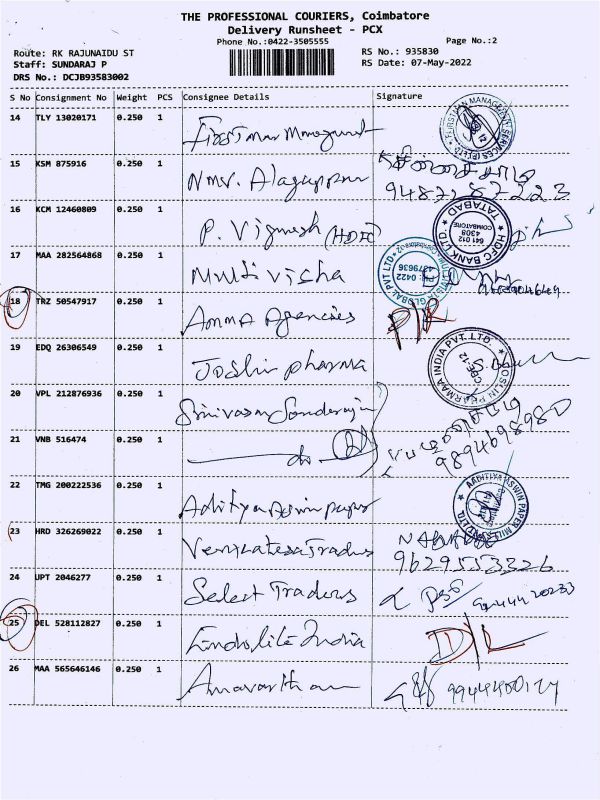 THE PROFESSIONAL COURIERS, Coimbatore
Delivery Runsheet - PCX
Phone No.:0422-3505555
Page No.:2
Route: RK RAJUNAIDU ST
RS No.: 935830
Staff: SUNDARAJ P
RS Date: 07-May-2022
DRS No.: DCJB93583002
S No Consignment No Weight PCS Consignee Details Signature
14 TLY 13020171 0.250 1 Firstman
15 KSM 875916 0.250 1 Nmv. Alagappan
16 KCM 12460809 0.250 1 P. Vignesh (HDFC)
HDFC BANK LTD. TATABAD
641 012
4308
COIMBATORE
17 MAA 282564868 0.250 1 Multi Visha
PH: 0422
4379636
18 TRZ 50547917 0.250 1 Amma Agencies
19 EDQ 26306549 0.250 1 Joslin pharma
JOSLIN PHARMAA INDIA PVT. LTD.
CBE-12
20 VPL 212876936 0.250 1 Srinivasan Sunderajan
21 VNB 516474 0.250 1 do
22 TMG 200222536 0.250 1 Aditya Aswin paper
23 HRD 326269022 0.250 1 Venkatesa Traders
9629553326
24 UPT 2046277 0.250 1 Select Traders
25 DEL 528112827 0.250 1 Endolite India D/L
26 MAA 565646146 0.250 1